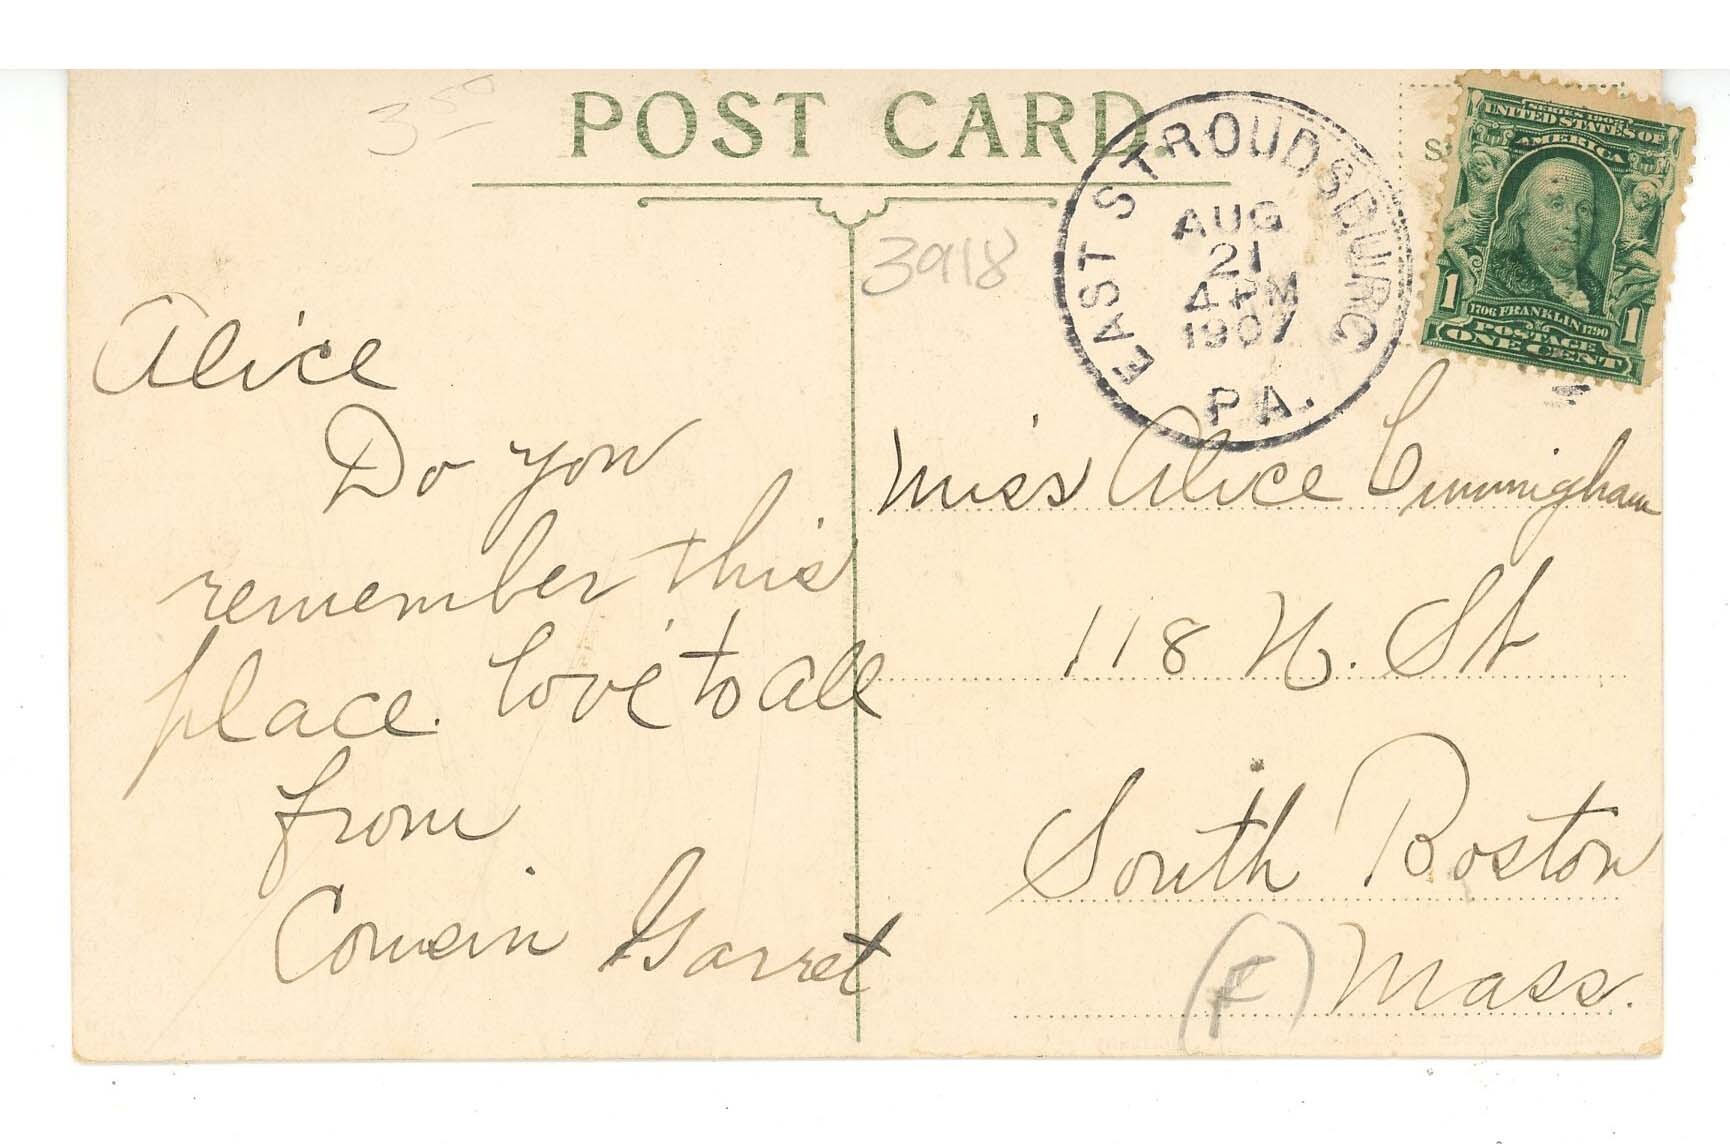 3 50
POST CARD.
EAST STROUDSBURG
AUG
21
4 PM
1907
PA.
SERIES 1902
UNITED STATES OF
AMERICA
1 1
1706 FRANKLIN 1790
POSTAGE
ONE CENT
3918
Alice
Do you
remember this
place. Love to all
from
Cousin Garret
Miss Alice Cunningham
118 N. St
South Boston
(F) Mass.